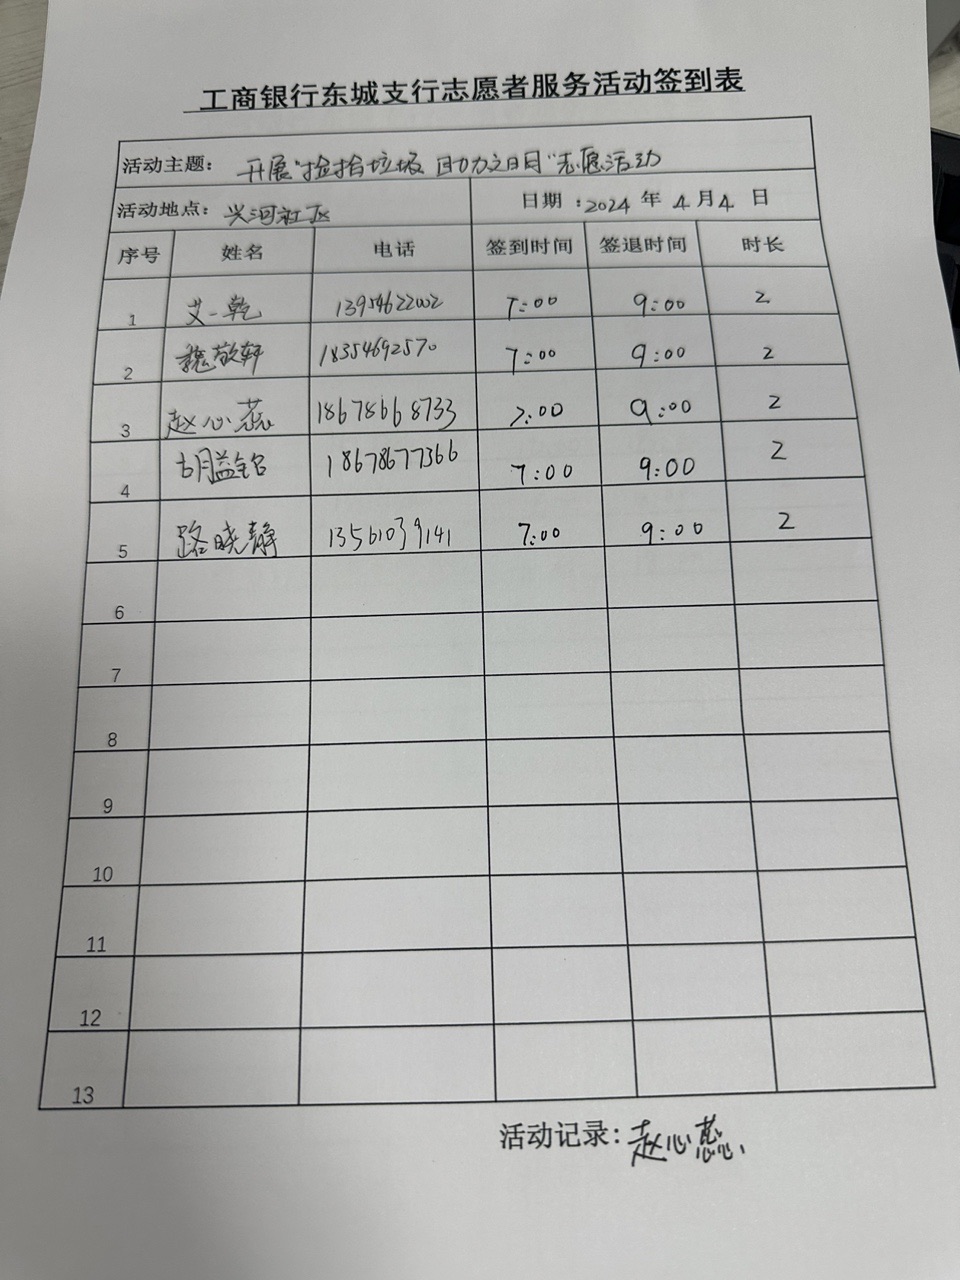 工商银行东城支行志愿者服务活动签到表
活动主题： 开展"捡拾垃圾 助力文明"志愿活动
活动地点： 兴河社区 日期：2024年4月4日
序号 姓名 电话 签到时间 签退时间 时长
1 艾一乾 13954622002 7:00 9:00 2
2 魏敬轩 18354692570 7:00 9:00 2
3 赵心蕊 18678668733 7:00 9:00 2
4 胡益铭 18678677366 7:00 9:00 2
5 路晓静 13561039141 7:00 9:00 2
6
7
8
9
10
11
12
13
活动记录：赵心蕊